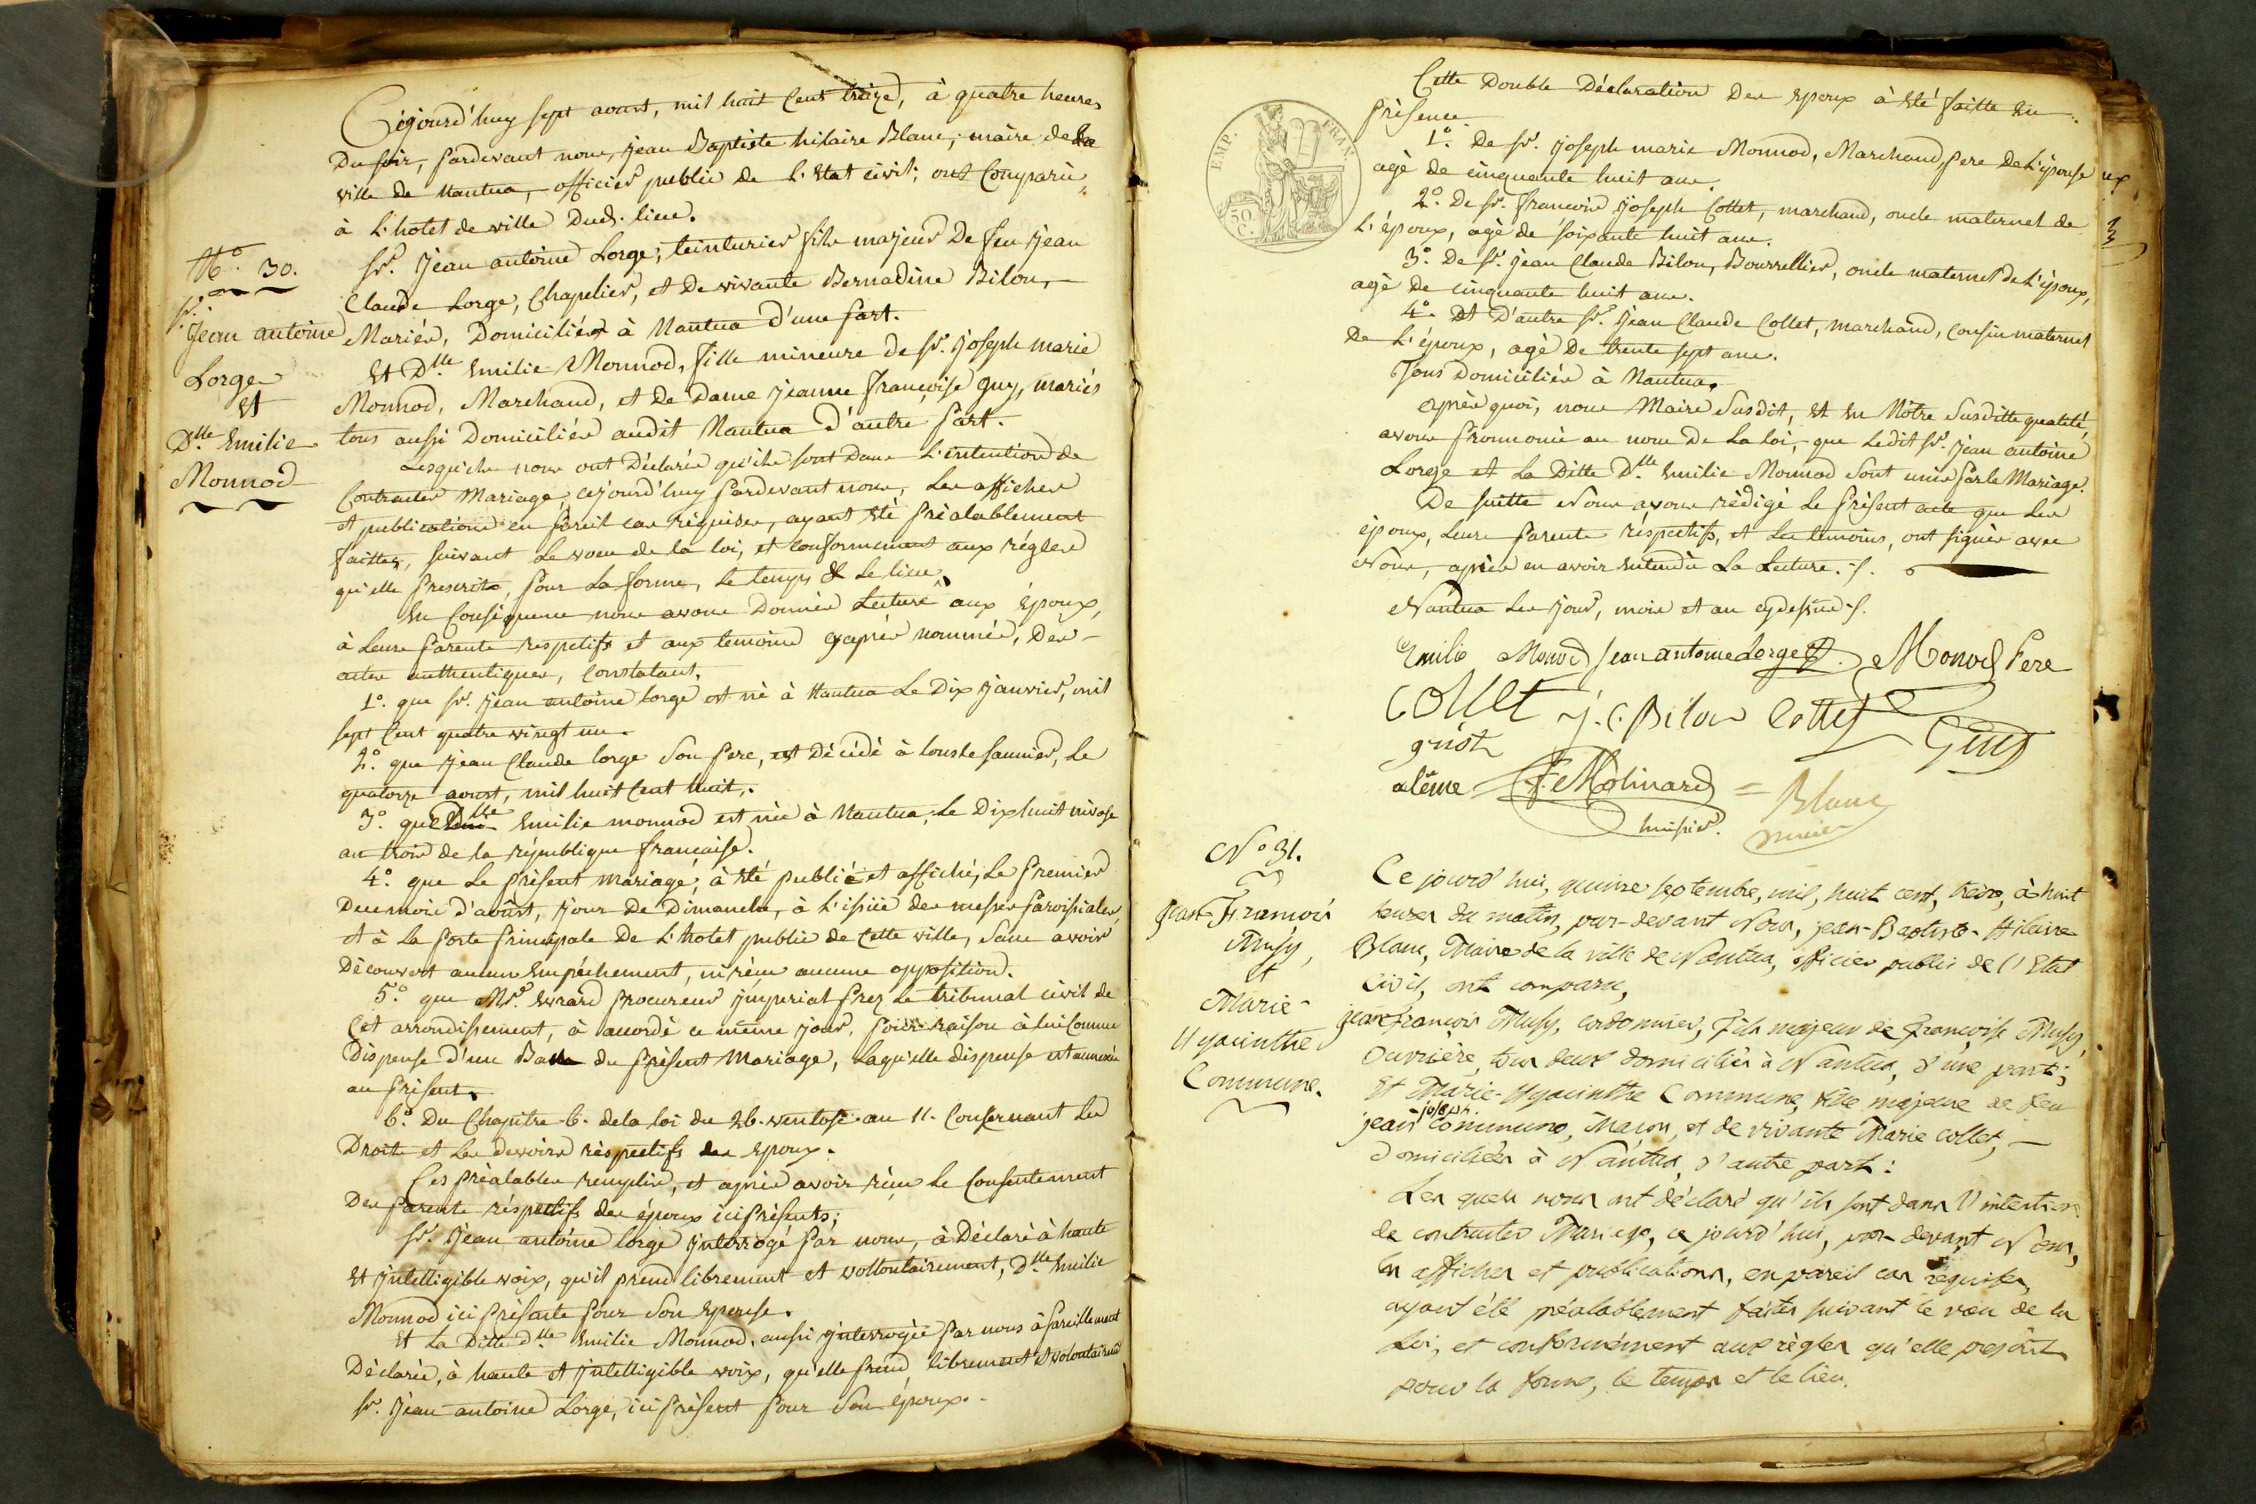 Cejourd'huy sept aoust, mil huit Cent treize, à quatre heures
Du soir, pardevant nous, jean Baptiste hilaire Blanc, maire de la
ville de Nantua, officier public de L'Etat civil; ont Comparû
à L'hotel de ville Dud. lieu.
N.° 30.
Sr. Jean antoine Lorge, teinturier fils majeur De feu jean
Claude Lorge, Chapelier, et De vivante Bernadine Bilon,
Sr. Jean antoine
Lorge
Et
Dlle Emilie
Monnod
Mariés, Domiciliés à Nantua d'une part.
Et Dlle Emilie Monnod, fille mineure de Sr. joseph marie
Monnod, Marchand, et de Dame jeanne françoise guy, mariés
tous aussi Domiciliés audit Nantua d'autre part.
Lesquels nous ont Déclarés qu'ils sont Dans L'intention de
Contracter Mariage, cejourd'huy pardevant nous, Les affiches
et publications en pareil cas réquises, ayant Eté préalablement
faittes, suivant Le voeu de la loi, et conformement aux régles
qu'elle prescrit, pour La forme, Le temps & Le lieu.
En Conséquence nous avons Donnés Lecture aux époux,
à Leurs parents respectifs et aux temoins cyaprés nommés, Des
actes authentiques, Constatant,
1.° que Sr. jean antoine Lorge est né à Nantua Le Dix janvier, mil
sept Cent quatre vingt un.
2.° que jean Claude lorge Son pere, est Décédé à Lonslesaunier, Le
quatorze aoust, mil huit Cent huit.
3.° que Dlle Emilie monnod est née à Nantua, Le Dixhuit nivose
an trois de la république francaise.
4.° que Le présent mariage, à Eté publié et affiché, Le premier
Du mois d'août, jour De Dimanche, à L'issüe des messes paroissiales,
et à La porte principale De L'hotel public de Cette ville, Sans avoir
Découvert aucun Empéchement, ni réçu aucune opposition.
5.° que Mr. Evrard procureur jmperial prez Le tribunal civil de
Cet arrondissement, à accordé ce même jour, pour raison à lui Connue
Dispense d'un Ban du présent Mariage, Laquelle dispense est annexée
au présent.
6.° Du Chapitre 6. de la loi du 26. ventose an 11. Consernant Les
Droits et Les devoirs réspectifs des Epoux.
Ces préalables remplis, et aprés avoir réçu Le Consentement
Des parents réspectifs des époux ici présents;
Sr. Jean antoine Lorge jnterrogé par nous, à Déclaré à haute
Et jntelligible voix, qu'il prend librement et vollontairement, Dlle Emilie
Monnod ici présente pour Son Epouse.
Et La Ditte Dlle Emilie Monnod, aussi jnterrogée par nous à pareillement
Déclarée, à haute et jntelligible voix, qu'elle prend librement et volontairement
Sr. Jean antoine Lorge, ici présent pour Son époux.
Cette Double Déclaration Des Epoux à Eté faitte En
présence
EMP. FRAN.
50 C.
1.° De Sr. joseph marie Monnod, Marchand, pere De L'épouse
agé de cinquante huit ans.
2.° De Sr. francois joseph Collet, marchand, oncle maternel de
L'époux, agé de soixante huit ans.
3.° De Sr. jean Claude Bilon, Bourrellier, oncle maternel De L'époux,
agé de cinquante huit ans.
4.° Et D'autre Sr. jean Claude Collet, marchand, cousin maternel
De L'époux, agé De trente sept ans.
Tous Domiciliés à Nantua.
Aprés quoi, nous Maire Susdit, Et En Nôtre Susditte qualité,
avons prononcé au nom De La loi, que Ledit Sr. Jean antoine
Lorge et La Ditte Dlle Emilie Monnod Sont unis par le Mariage.
De suitte Nous avons rédigé Le présent acte que Les
époux, Leurs parents réspectifs, et Les temoins, ont signés avec
Nous, aprés en avoir Entendü La Lecture.
Nantua Les jour, mois et an cydessus.
Emilie Monod Jean antoine Lorge Monod Pere
Collet J. C. Bilon Collet Guy
alême F. Molinard Blanc
huissier. maire
N.° 31.
Jean-François
Musy,
et
Marie-
Hyacinthe
Commune.
Ce jourd'hui, quinze septembre, mil, huit cent, treize, à huit
heures du matin, par-devant Nous, jean-Baptiste-Hilaire
Blanc, Maire de la ville de Nantua, officier public de l'Etat
Civil, ont comparu,
jean françois Musy, cordonnier, fils majeur de françoise Musy,
Ouvrière, tous deux domiciliés à Nantua, d'une part;
Et Marie-Hyacinthe Commune, fille majeure de feu
joseph
jean Commune, Maçon, et de vivante Marie Collet,
domiciliés à Nantua, d'autre part:
Les quels nous ont déclaré qu'ils sont dans l'intention
de contracter Mariage, ce jourd'hui, par-devant Nous,
les affiches et publications, en pareil cas requises,
ayant été préalablement faites suivant le vœu de la
Loi, et conformément aux règles qu'elle prescrit
pour la forme, le temps et le lieu.